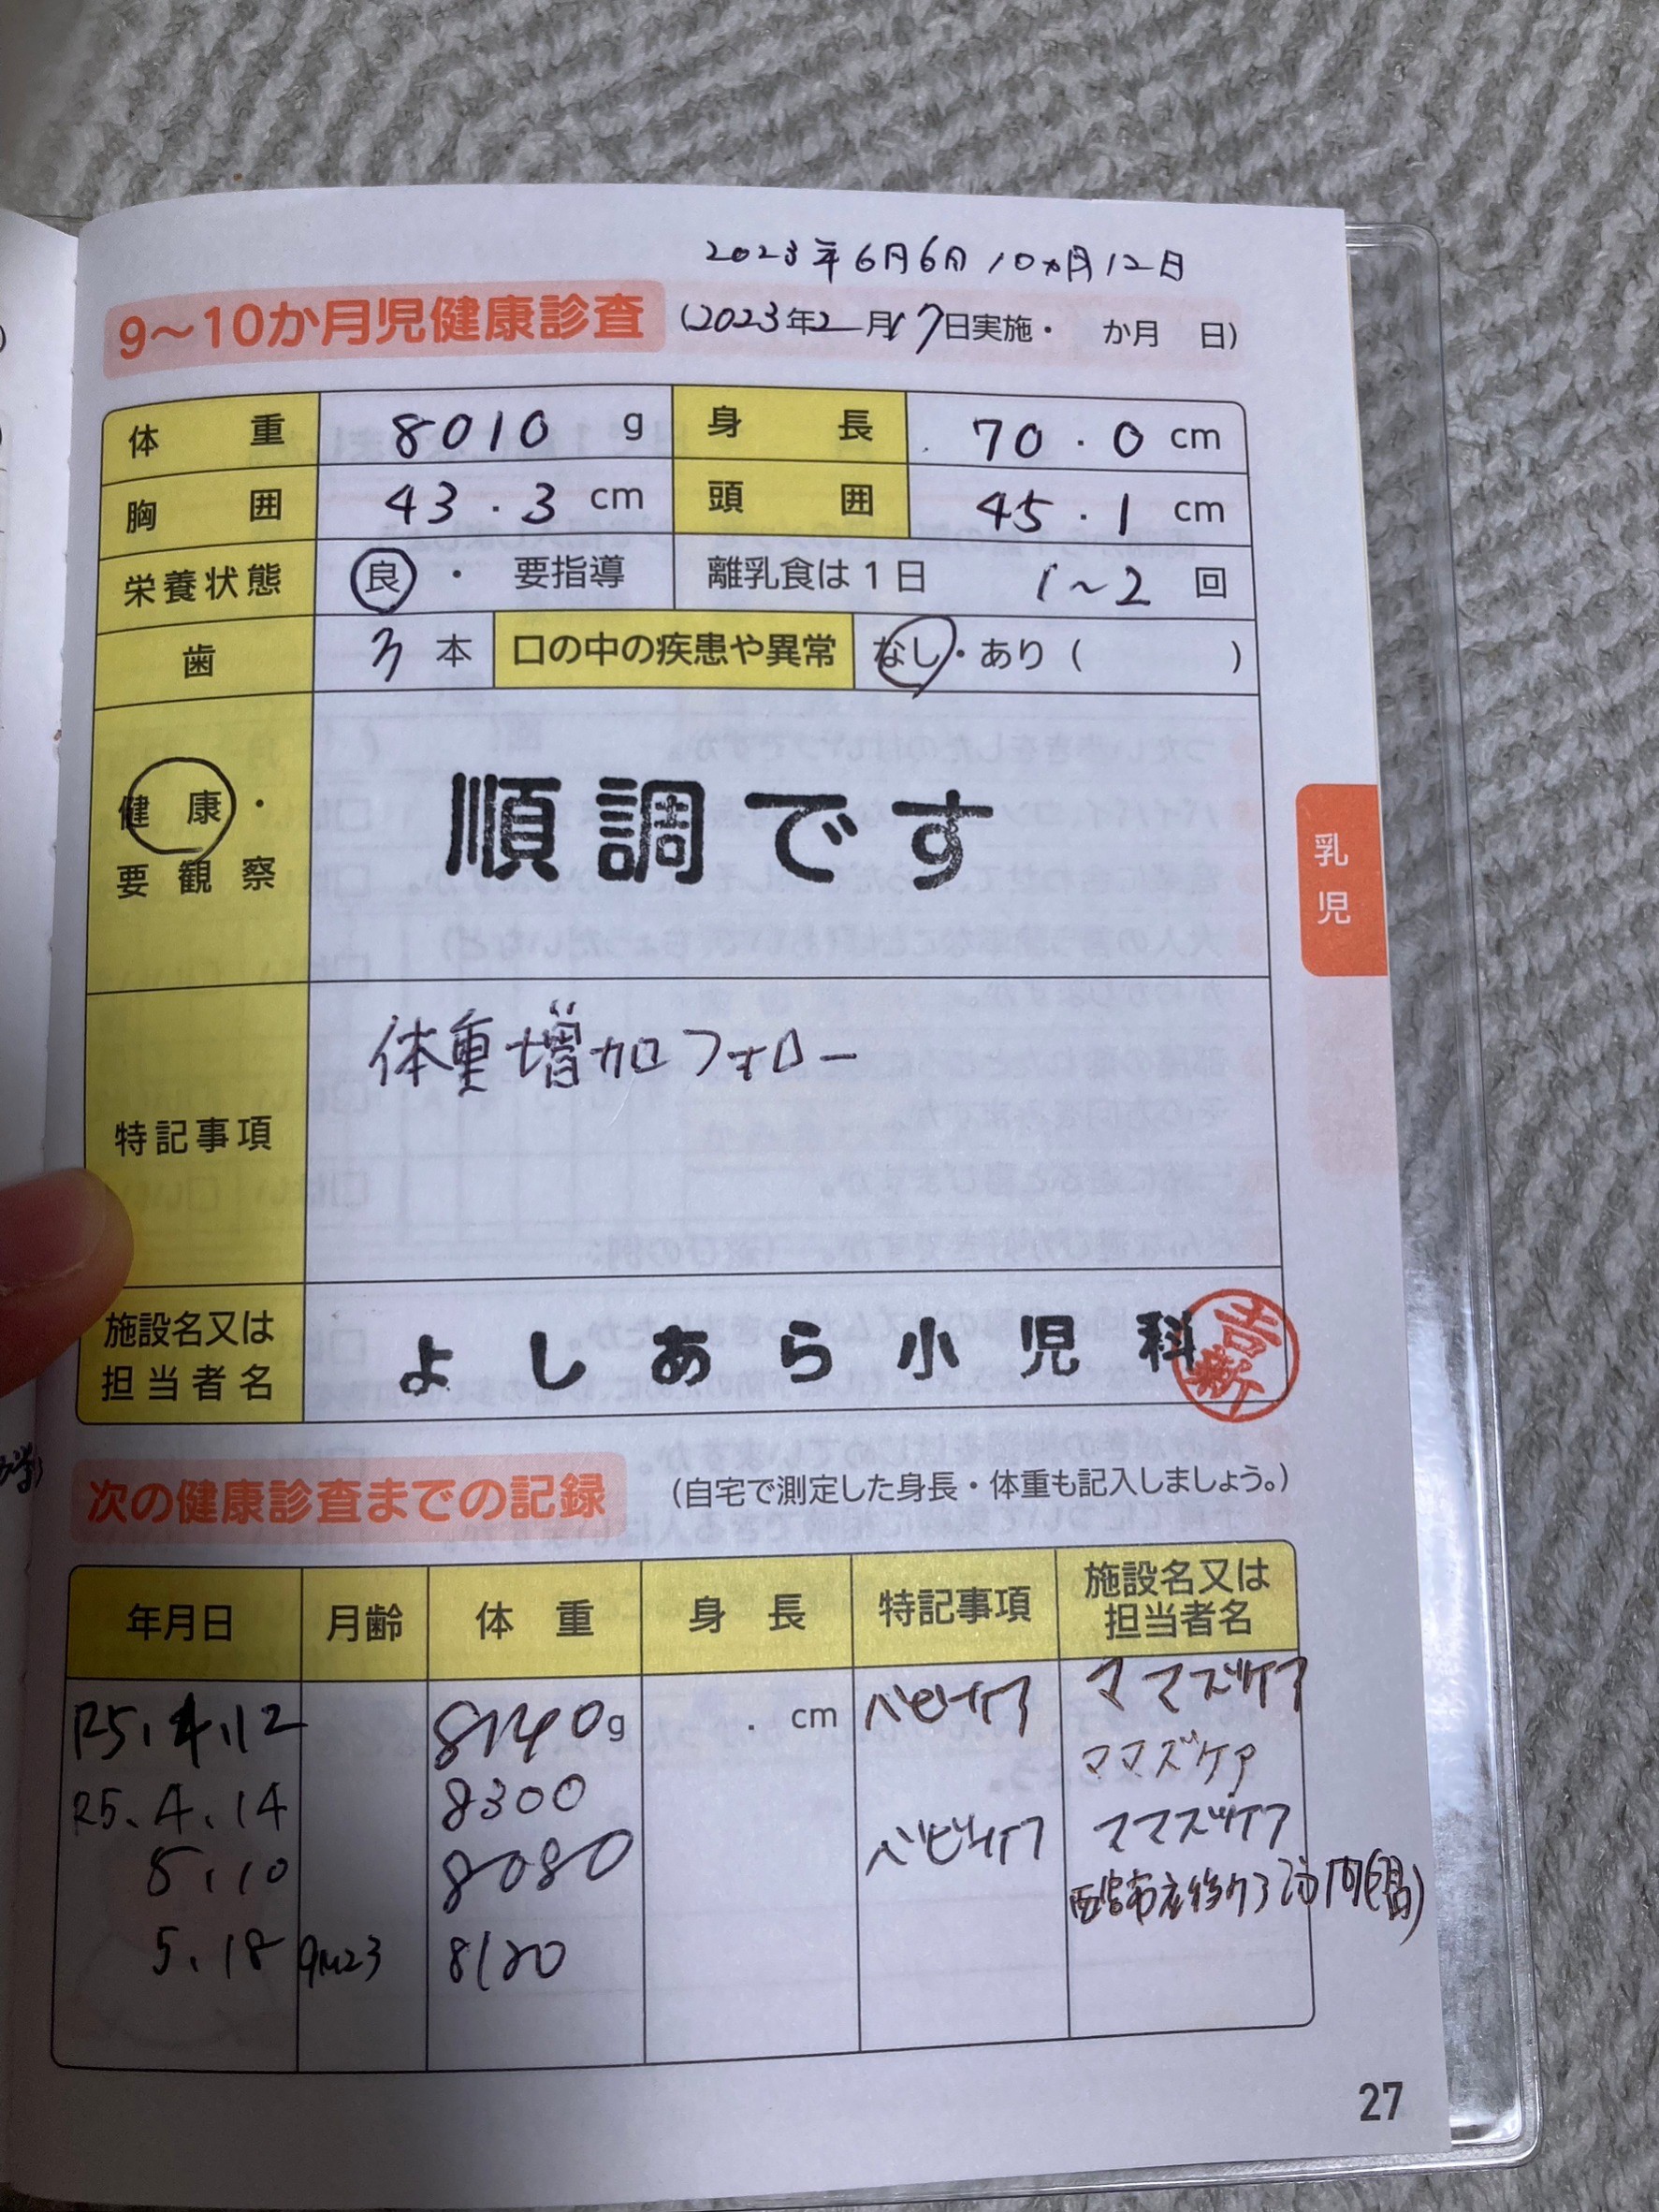 2023年6月6日 10ヵ月12日
9～10か月児健康診査 (2023年2月17日実施・ か月 日)
体重 8010 g 身長 70.0 cm
胸囲 43.3 cm 頭囲 45.1 cm
栄養状態 良・要指導 離乳食は1日 1～2 回
歯 3 本 口の中の疾患や異常 なし・あり( )
健康・
要観察
順調です
乳児
特記事項
体重増加フォロー
施設名又は
担当者名
よしあら小児科
吉新
次の健康診査までの記録 (自宅で測定した身長・体重も記入しましょう。)
年月日 月齢 体重 身長 特記事項 施設名又は担当者名
R5.4.12 8140g . cm ベビーケア ママズケア
R5.4.14 8300 ママズケア
5.10 8080 ベビーケア ママズケア
西宮市産後ケア訪問
5.18 9m23 8120
27